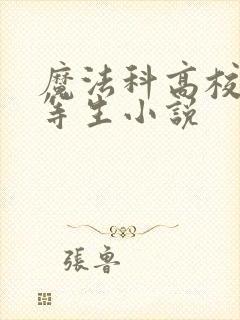 魔法科高校
等生小説
張魯